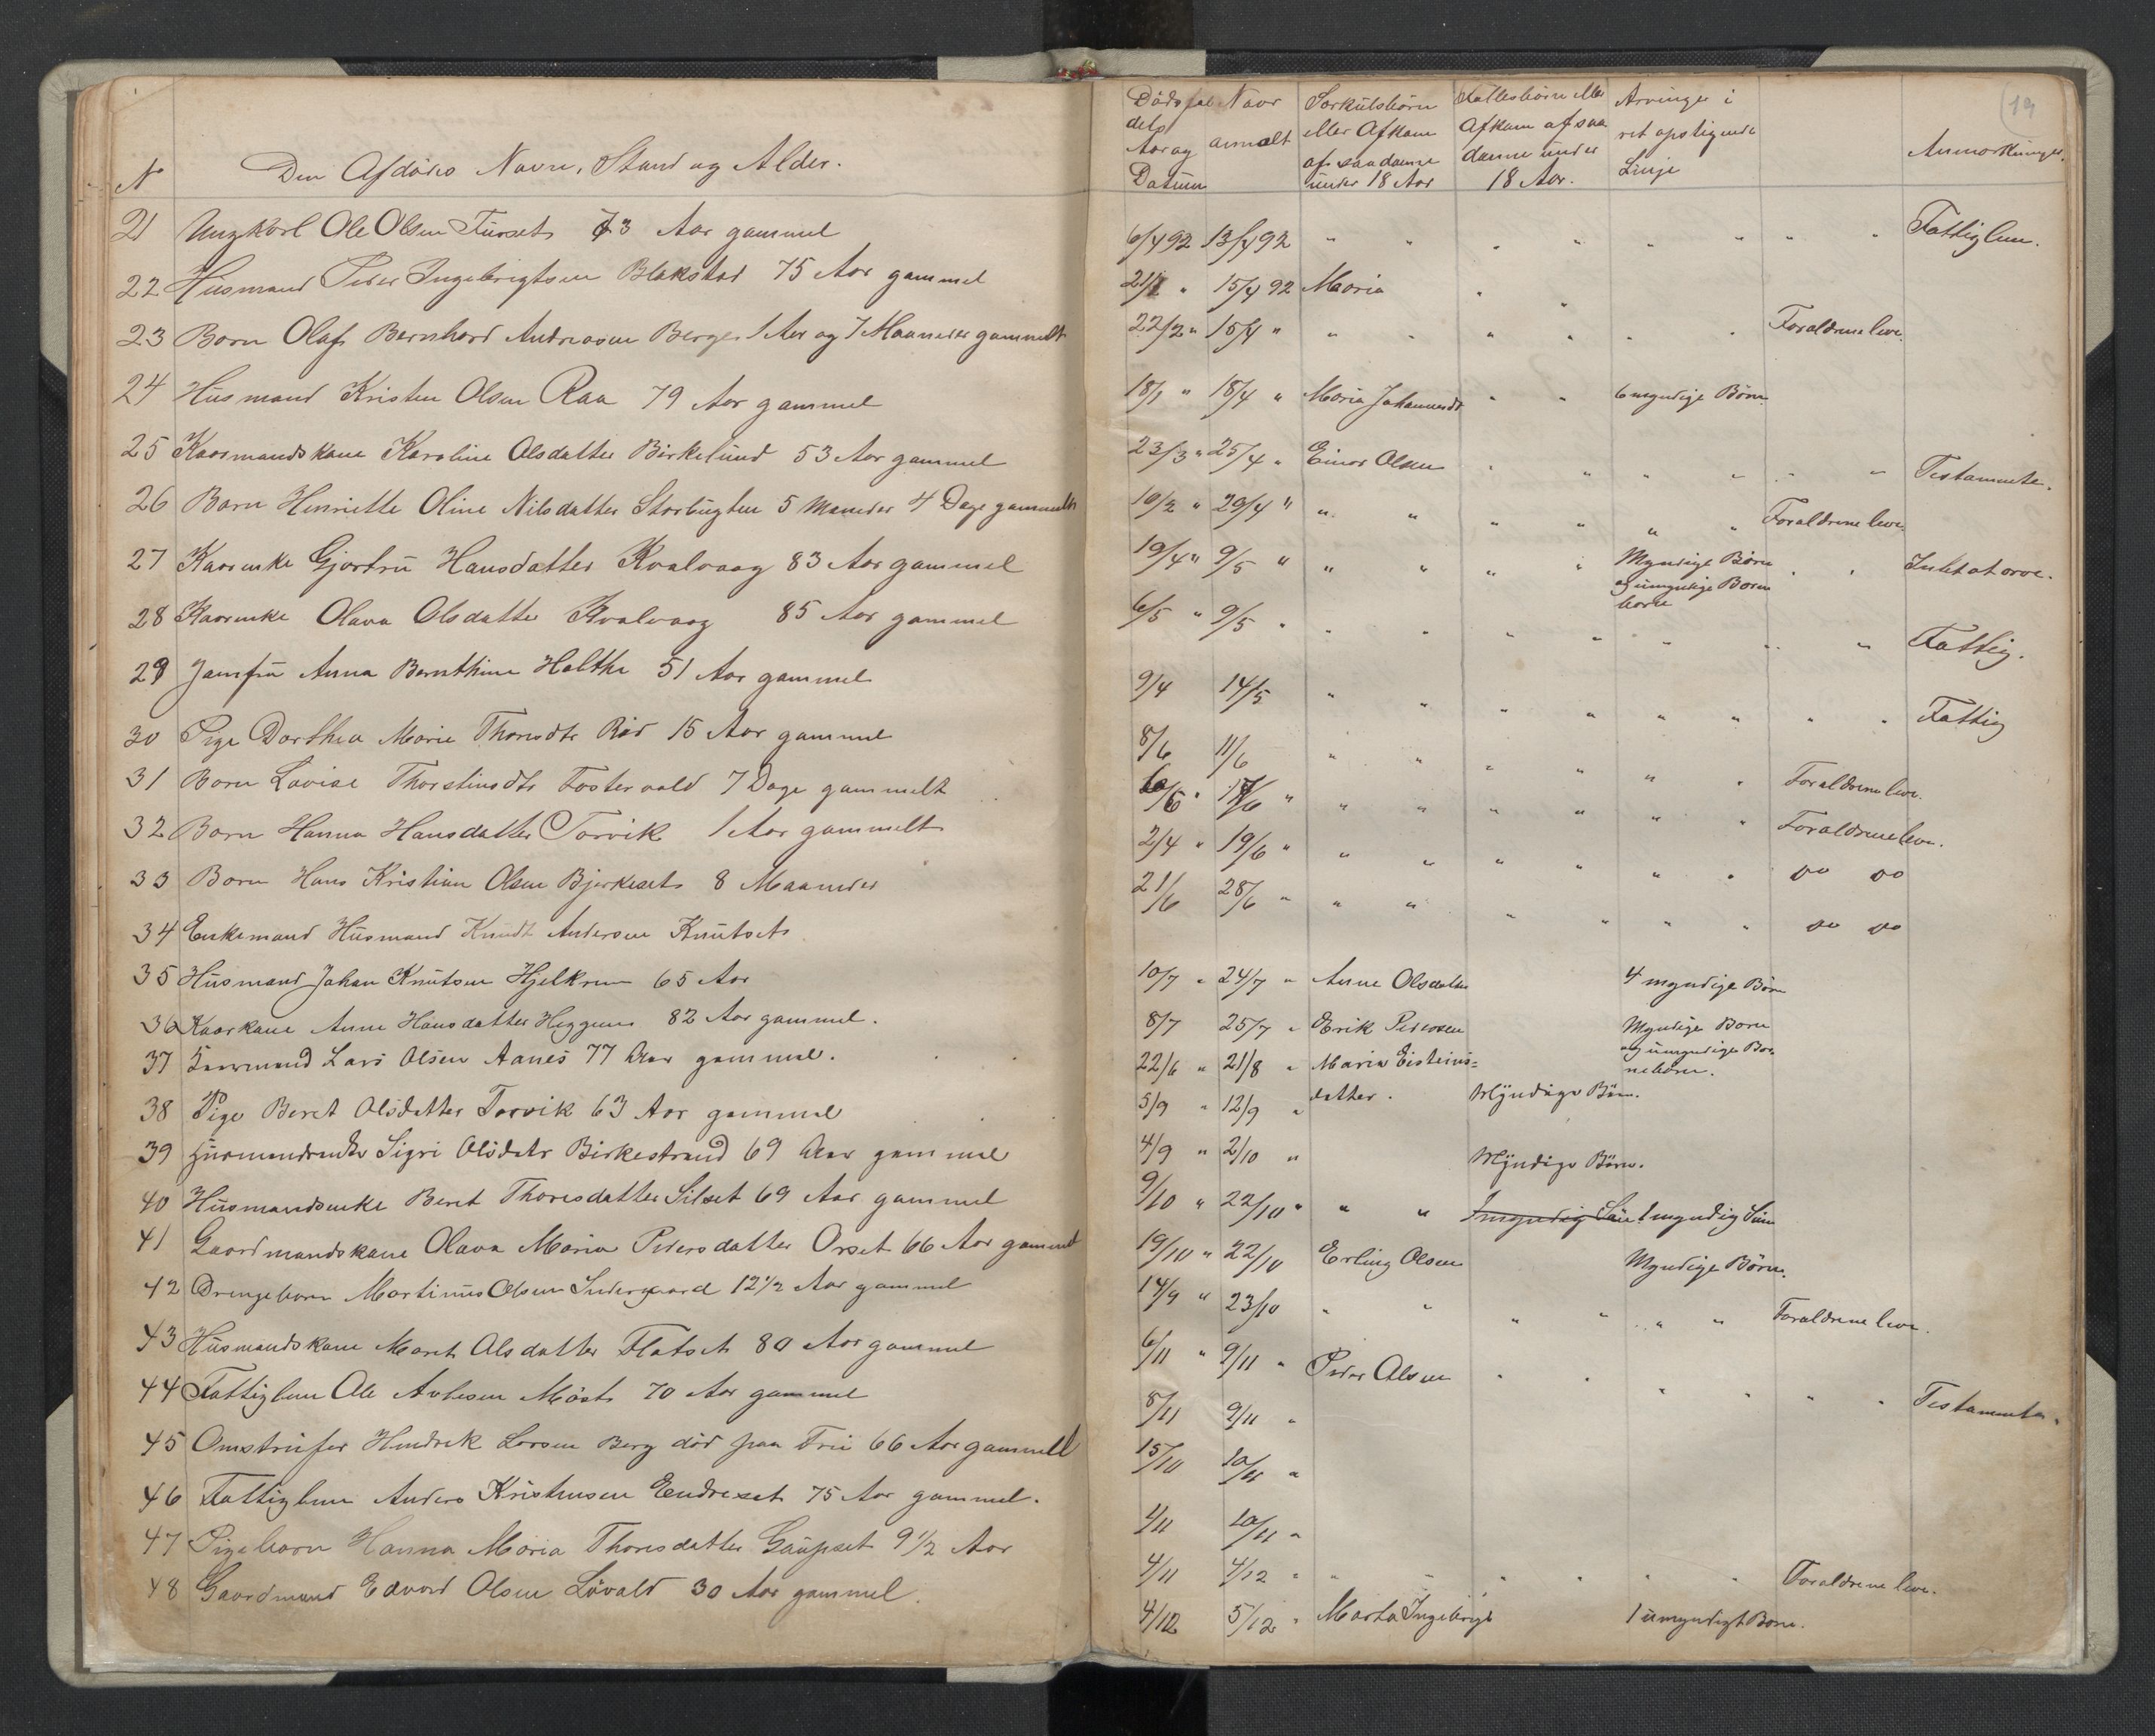 No Den Afdødes Navn, Stand og Alder.
21 Ungkarl Ole Olsen Furset 73 Aar gammel
22 Husmand Peder Ingebrigtsen Blakstad 75 Aar gammel
23 Barn Olaf Bernhard Andreasen Berge 1 Aar og 7 Maaneder gammelt
24 Husmand Kristen Olsen Raa 79 Aar gammel
25 Kaarmandskone Karoline Olsdatter Birkelund 53 Aar gammel
26 Barn Henriette Oline Nilsdatter Storbugten 5 Maneder 4 Dage gammelt
27 Kaarenke Gjertru Hansdatter Kvalvaag 83 Aar gammel
28 Kaarenke Olava Olsdatter Kvalvaag 85 Aar gammel
29 Jomfru Anna Bernthine Holthe 51 Aar gammel
30 Pige Dorthea Marie Thoresdtr Rød 15 Aar gammel
31 Barn Lovise Thorstinsdtr Fostervold 7 Dage gammelt
32 Barn Hanna Hansdatter Torvik 1 Aar gammelt
33 Barn Hans Kristian Olsen Bjerkeset 8 Maaneder
34 Enkemand Husmand Knudt Andersen Knutset
35 Husmand Johan Knutsen Hjelkrem 65 Aar
36 Kaarkone Anne Hansdatter Heggem 82 Aar gammel.
37 Kaarmand Lars Olsen Aanes 77 Aar gammel.
38 Pige Beret Olsdatter Torvik 63 Aar gammel
39 Husmandsenke Sigri Olsdatr Birkestrand 69 Aar gammel
40 Husmandsenke Beret Thoresdatter Silset 69 Aar gammel
41 Gaardmandskone Olava Maria Pedersdatter Orset 66 Aar gammel
42 Drengebarn Martinus Olsen Indergaard 12 1/2 Aar gammel
43 Husmandskone Maret Olsdatter Flatset 80 Aar gammel
44 Fattiglem Ole Møst 70 Aar gammel
45 Omstrifer Hendrik Larsen Berg død paa 66 Aar gammell
46 Fattiglem Anders Kristensen Endreset 75 Aar gammel.
47 Pigebarn Hanna Maria Thoresdatter Gaupset 9 1/2 Aar
48 Gaardmand Edvard Olsen Løvold 30 Aar gammel.
19
Dødsfal Naar Særkulsbørn Fællesbørn eller Arvinger i
dets anmelt eller Afkom Afkom af saa ret opstigende
Aar og af saadanne danne under Linje Anmærkninger.
Datum under 18 Aar 18 Aar.
6/4 92 13/4 92 " " " " " " " " Fattiglem.
21/1 " 15/4 92 Maria " "
22/2 " 15/4 " " " " " " " Foraldrene leve.
18/1 " 18/4 " Maria Johannesdt " " 6 myndige Børn
23/3 " 25/4 " Einar Olsen " " " " " " Testamente.
16/2 " 29/4 " " " " " " " Foraldrene leve
19/4 " 9/5 " " " " " Myndige Børn " " Intet at arve.
og umyndige Børne
børn
6/5 " 9/5 " " " " " " " " Fattig.
9/4 14/5 " " " " " " " " Fattig
8/6 11/6 " " " " " " Foraldrene leve.
6/6 " 17/6 " " " " " " " Foraldrene leve.
2/4 " 19/6 " " " " " " " do do
21/6 28/6 " " " " " " " do do
10/7 " 24/7 " Anne Olsdatter 4 myndige Børn
8/7 25/7 " Erik Pedersen Myndige Børn
og umyndige Bør
nebørn.
22/6 " 21/8 " Maria Eisteins=
datter. Myndige Børn.
5/9 " 12/9 "
4/9 " 2/10 " Myndige Børn.
9/10 " 22/10 " " " 1 myndig Søn
19/10 " 22/10 Erling Olsen Myndige Børn.
14/9 " 23/10 " " " " " " Foraldrene leve.
6/11 " 9/11 " Peder Olsen " " " " " " Testamente.
8/11 9/11 "
15/10 10/11 "
4/11 10/11 "
4/11 4/12 " " " " " " " Foraldrene leve.
4/12 5/12 " Marta Ingebrigt 1 umyndigt Barn.